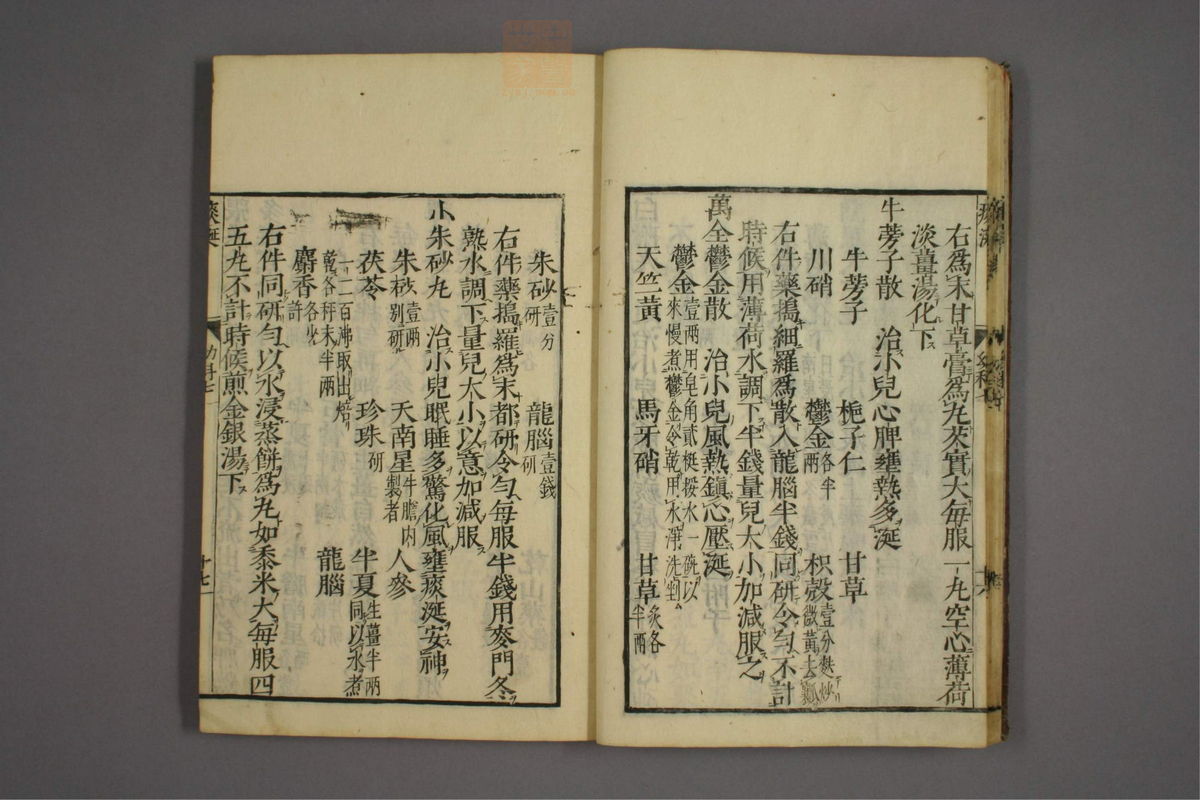 右為末甘草膏為丸芡實大每服一丸空心薄荷
淡薑湯化下
牛蒡子散　治小兒心脾壅熱多涎
牛蒡子　梔子仁　甘草
川硝　鬱金各半兩　枳殼壹分麩炒微黃去瓤
右件藥搗細羅為散入龍腦半錢同研令勻不計
時候用薄荷水調下半錢量兒大小加減服之
萬全鬱金散　治小兒風熱鎮心壓涎
鬱金壹兩用皂角貳梃挼水一碗以來慢煮鬱金令乾用水淨洗剉
天竺黃　馬牙硝　甘草炙各半兩
朱砂壹分研　龍腦壹錢研
右件藥搗羅為末都研令勻每服半錢用麥門冬
熟水調下量兒大小以意加減服
小朱砂丸　治小兒眠睡多驚化風壅痰涎安神
朱砂壹兩別研　天南星牛膽內製者　人參
茯苓　珍珠研　半夏生薑半兩同以水煮
一二百沸取出焙乾各秤末半兩　龍腦
麝香各少許
右件同研勻以水浸蒸餅為丸如黍米大每服四
五丸不計時候煎金銀湯下
痰涎
幼科七
十七